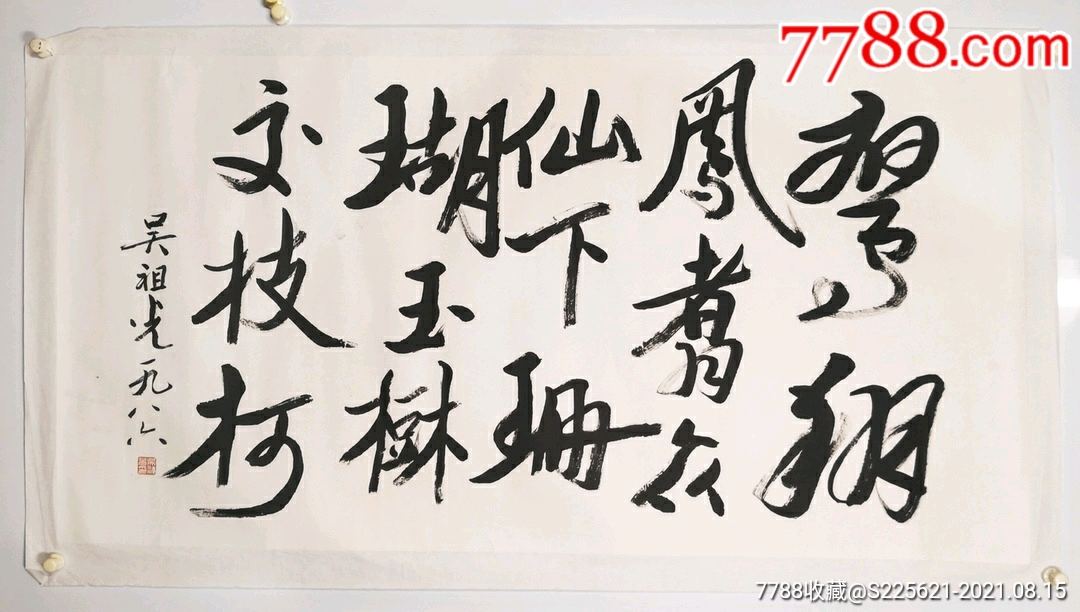 鸾翔
凤翥众
仙下珊
瑚玉树
交枝柯
吴祖光一九八六
7788.com
7788收藏@S225621-2021.08.15